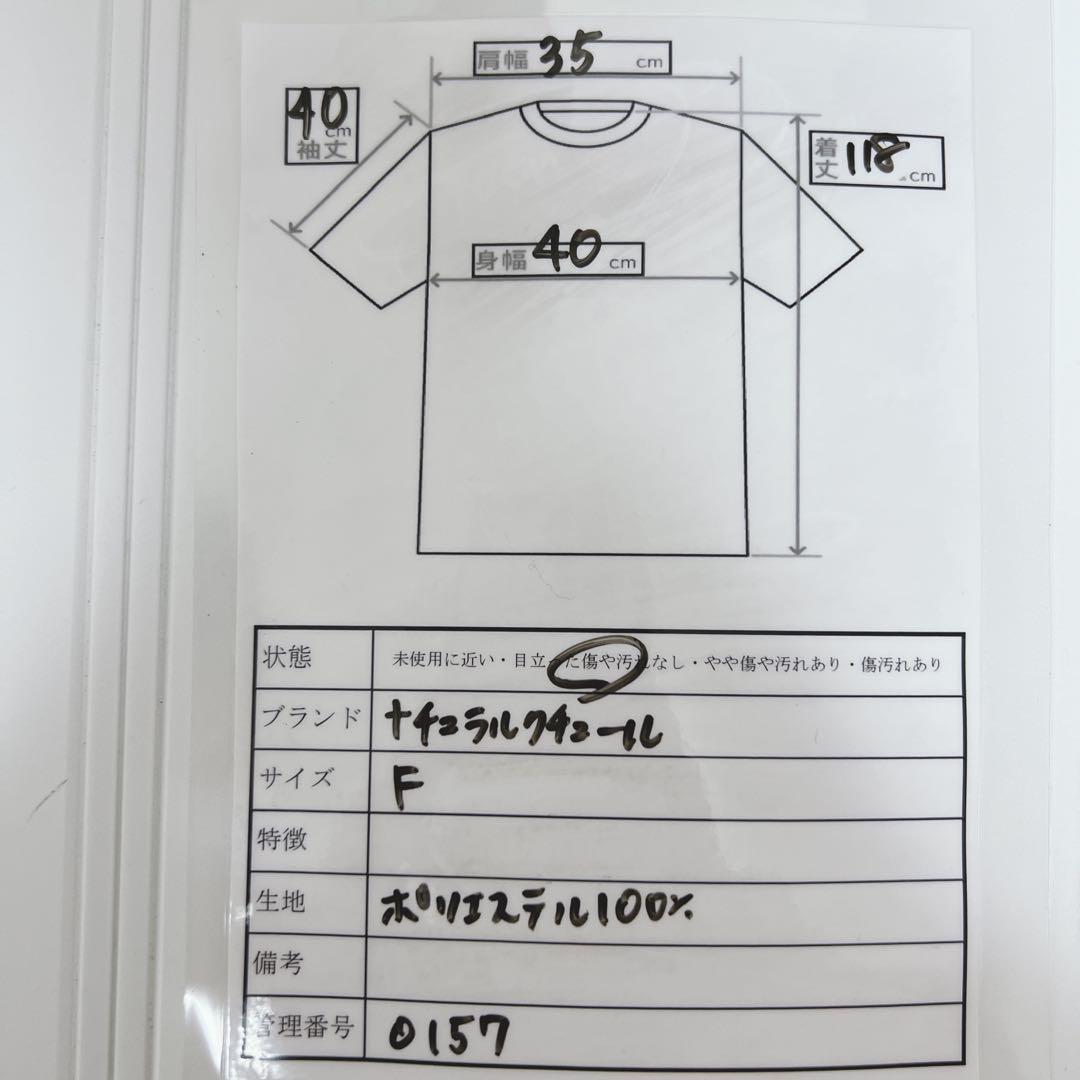 肩幅 35 cm
40 cm
袖丈
着丈 118 cm
身幅 40 cm
状態 未使用に近い・目立った傷や汚れなし・やや傷や汚れあり・傷汚れあり
ブランド ナチュラルクチュール
サイズ F
特徴
生地 ポリエステル100%
備考
管理番号 0157